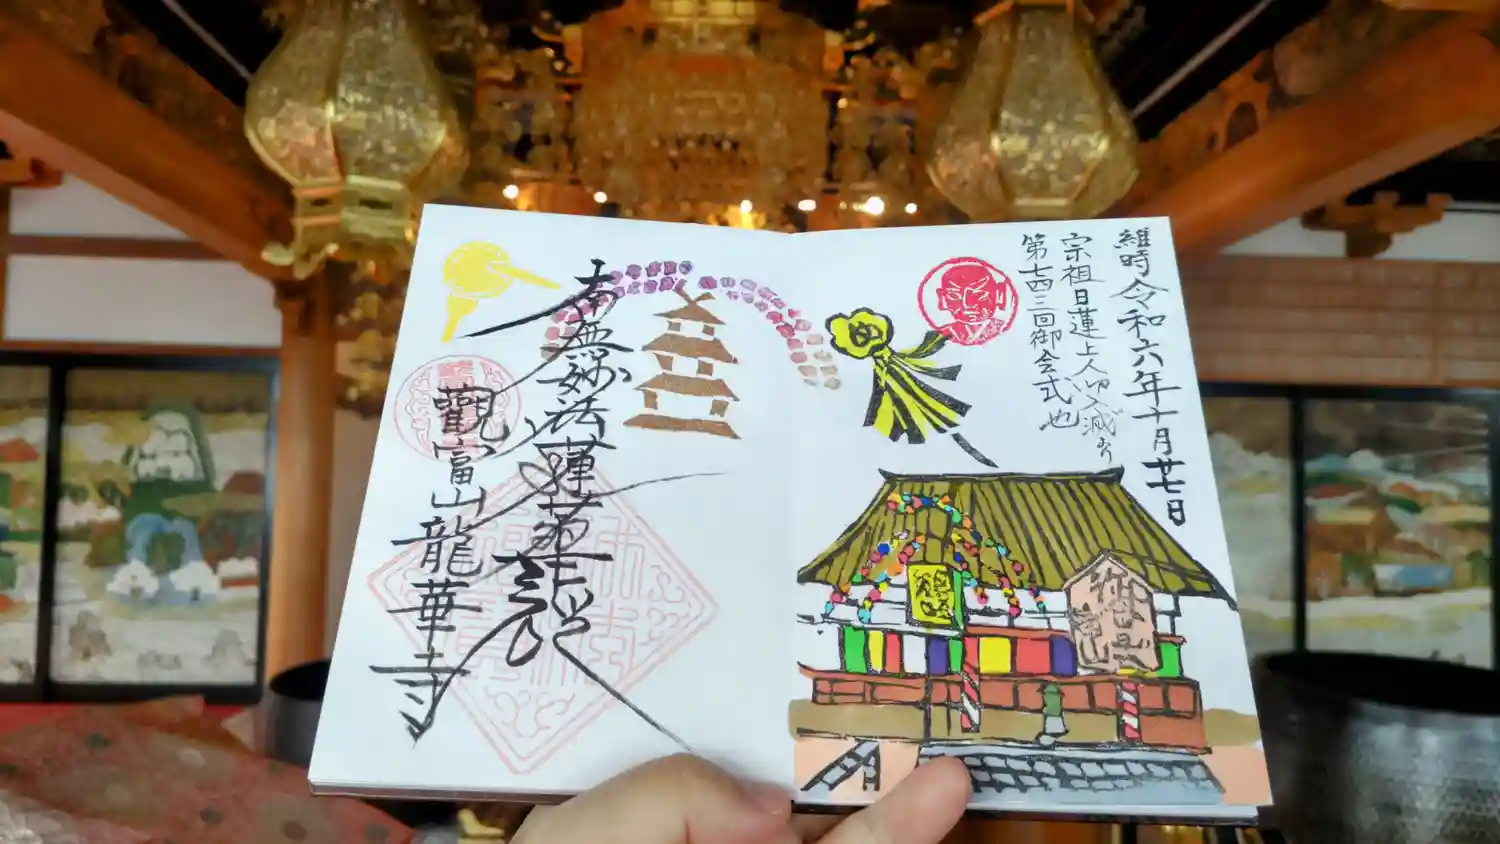 維時令和六年十月廿七日
宗祖日蓮上人
第七四三回御会式也
南無妙法蓮華経
觀富山龍華寺